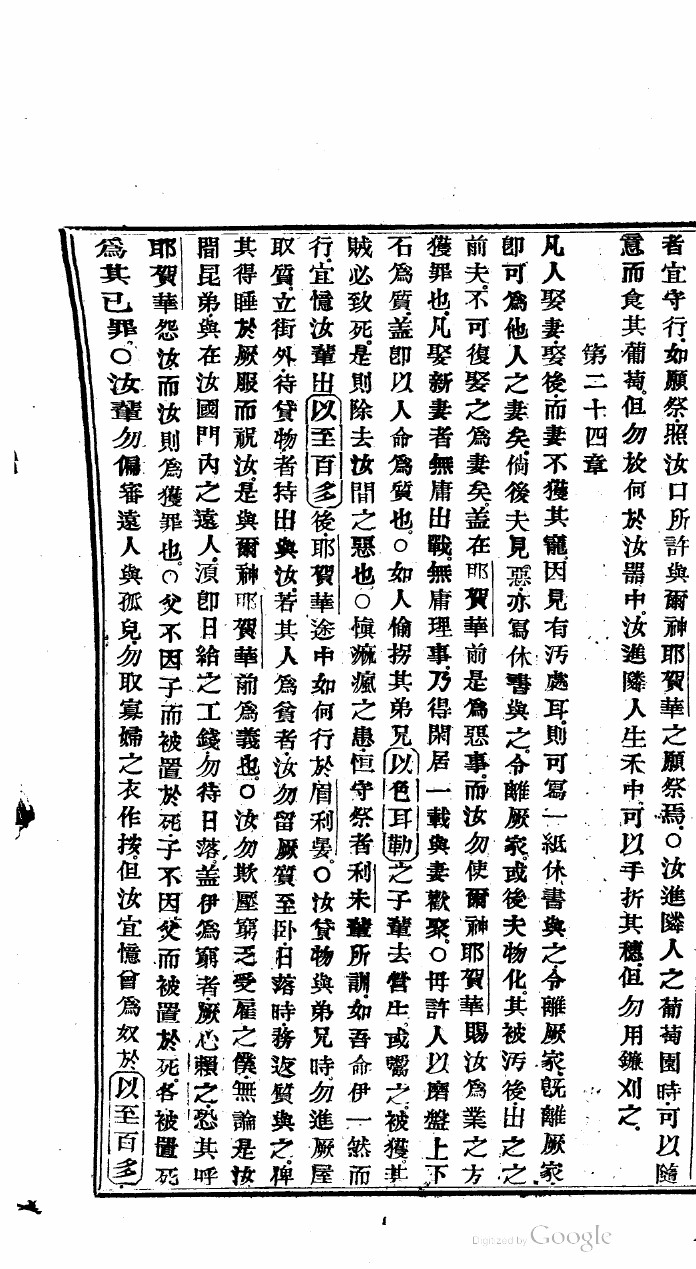 者宜守行。如願祭。照汝口所許與爾神耶賀華之願祭焉。○汝進隣人之葡萄園時。可以隨
意而食其葡萄。但勿放何於汝器中。汝進隣人生禾中。可以手折其穗。但勿用鐮刈之。
第二十四章
凡人娶妻。娶後。而妻不獲其寵。因見有汚處耳。則可寫一紙休書與之。令離厥家。旣離厥家。
卽可爲他人之妻矣。倘後夫見惡。亦寫休書與之。令離厥家。或後夫物化。其被汚後。出之之
前夫。不可復娶之爲妻矣。蓋在耶賀華前是爲惡事。而汝勿使爾神耶賀華賜汝爲業之方
獲罪也。凡娶新妻者。無庸出戰。無庸理事。乃得閑居一載。與妻歡聚。○毋許人以磨盤上下
石爲質。蓋卽以人命爲質也。○如人偷拐其弟兄以色耳勒之子輩去營生。或鬻之。被獲其
賊必致死。是則除去汝間之惡也。○愼痲瘋之患。恒守祭者利未輩所訓。如吾命伊一然而
行。宜憶汝輩出以至百多後。耶賀華途中如何行於眉利晏。○汝貸物與弟兄時。勿進厥屋
取質。立街外。待貸物者持出與汝。若其人爲貧者。汝勿留厥質至卧。日落時。務返質與之。俾
其得睡於厥服而祝汝。是與爾神耶賀華前爲義也。○汝勿欺壓窮乏受雇之僕。無論是汝
間昆弟。與在汝國門內之遠人。須卽日給之工錢。勿待日落。蓋伊爲窮者。厥心賴之。恐其呼
耶賀華怨汝。而汝則爲獲罪也。○父不因子而被置於死。子不因父而被置於死。各被置死
爲其已罪。○汝輩勿偏審遠人與孤兒。勿取寡婦之衣作按。但汝宜憶曾爲奴於以至百多。
Digitized by Google